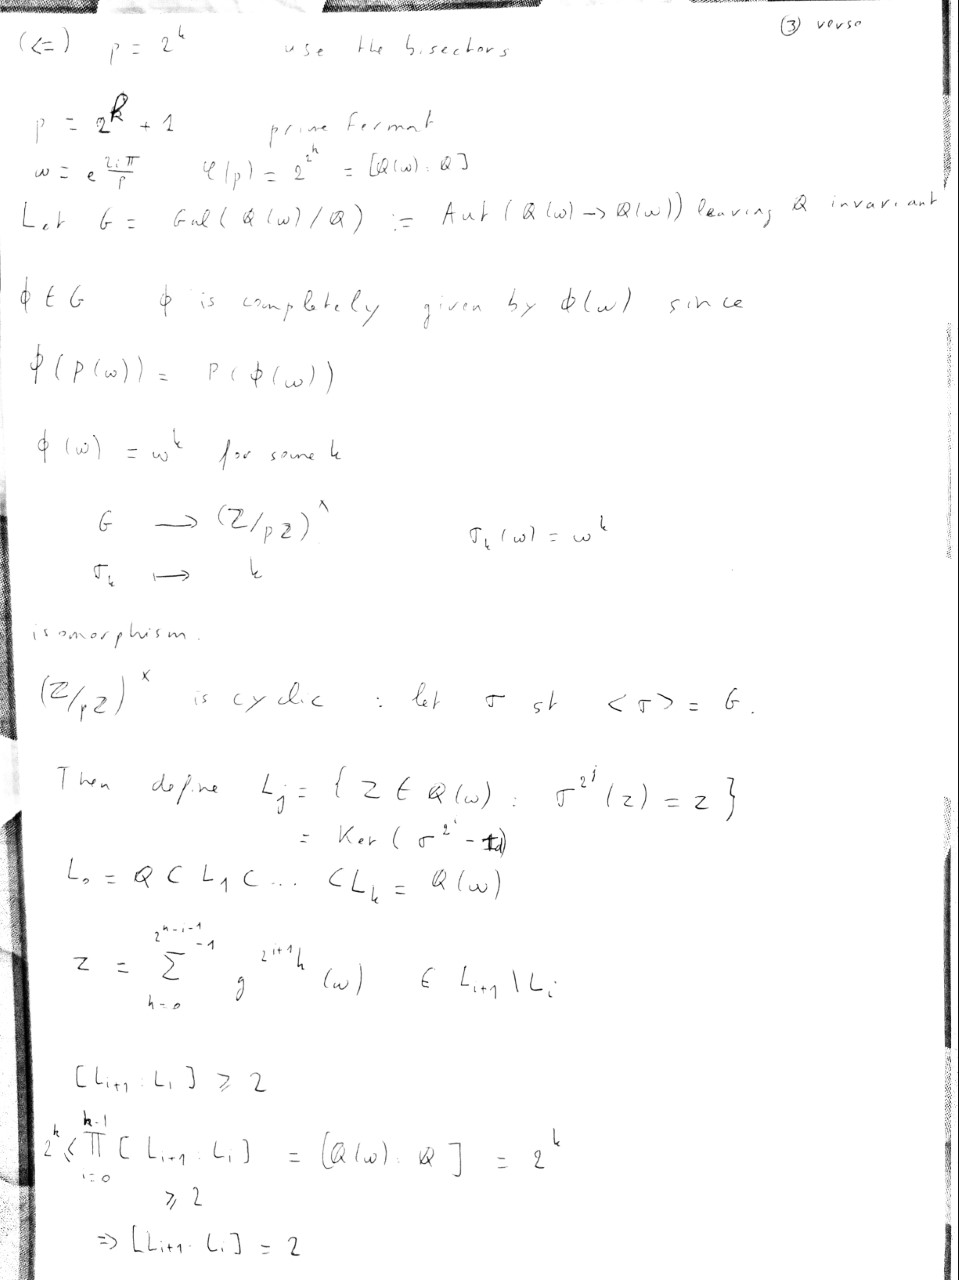 ③ verso
(<=) p = 2^k use the bisectors
p = 2^k + 1 prime Fermat
ω = e^{2iπ/p} φ(p) = 2^{2^k} = [Q(ω):Q]
Let G = Gal(Q(ω)/Q) := Aut(Q(ω)->Q(ω)) leaving Q invariant
ϕ ∈ G ϕ is completely given by ϕ(ω) since
ϕ(P(ω)) = P(ϕ(ω))
ϕ(ω) = ω^k for some k
G → (Z/pZ)^× σ_k(ω) = ω^k
σ_k ↦ k
isomorphism.
(Z/pZ)^× is cyclic : let σ st <σ> = G.
Then define L_j = { z ∈ Q(ω) : σ^{2^j}(z) = z }
= Ker(σ^{2^i} - Id)
L_0 = Q ⊂ L_1 ⊂ ... ⊂ L_k = Q(ω)
z = Σ_{h=0}^{2^{k-i-1}-1} g^{2^{i+1}h}(ω) ∈ L_{i+1} \ L_i
[L_{i+1} : L_i] ≥ 2
2^k ≤ Π_{i=0}^{k-1} [L_{i+1} : L_i] = [Q(ω) : Q] = 2^k
≥ 2
=> [L_{i+1} : L_i] = 2